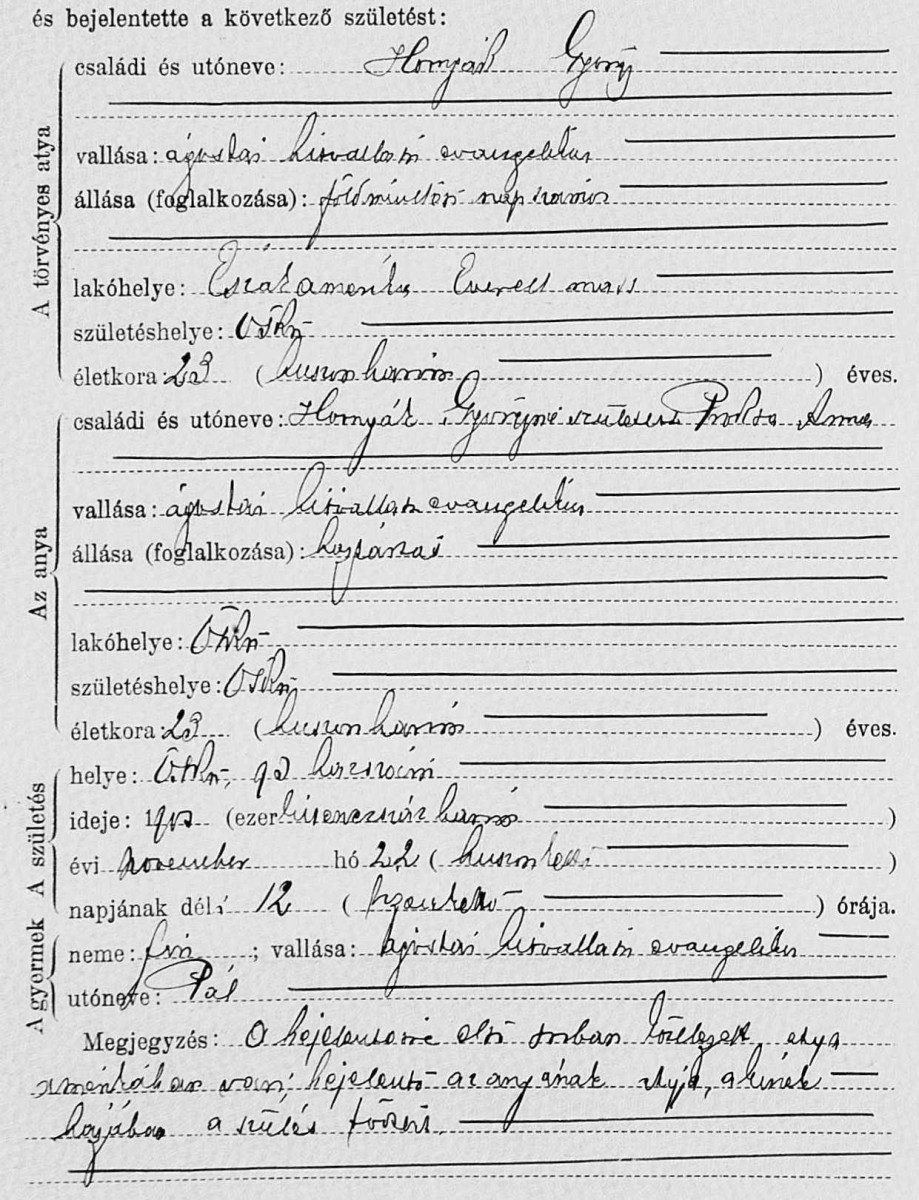 és bejelentette a következő születést:
A törvényes atya
családi és utóneve: Hornyák György
vallása: ágostai hitvallású evangelikus
állása (foglalkozása): földmívelési napszámos
lakóhelye: Északamerika Everett mass
születéshelye:
életkora: 23 (huszonhárom) éves.
Az anya
családi és utóneve: Hornyák Györgyné született Anna
vallása: ágostai hitvallású evangelikus
állása (foglalkozása): háztartási
lakóhelye:
születéshelye:
életkora: 23 (huszonhárom) éves.
A születés
helye: 92
ideje: 1903 (ezerkilenczszázhárom)
évi november hó 22 (huszonkettő)
napjának dél. 12 (tizenkettő) órája.
A gyermek
neme: fiú; vallása: ágostai hitvallású evangelikus
utóneve: Pál
Megjegyzés: A bejelentésre első sorban kötelezett atya
amerikában van; bejelentő az anyának atyja, a kinek
házában a szülés történt.